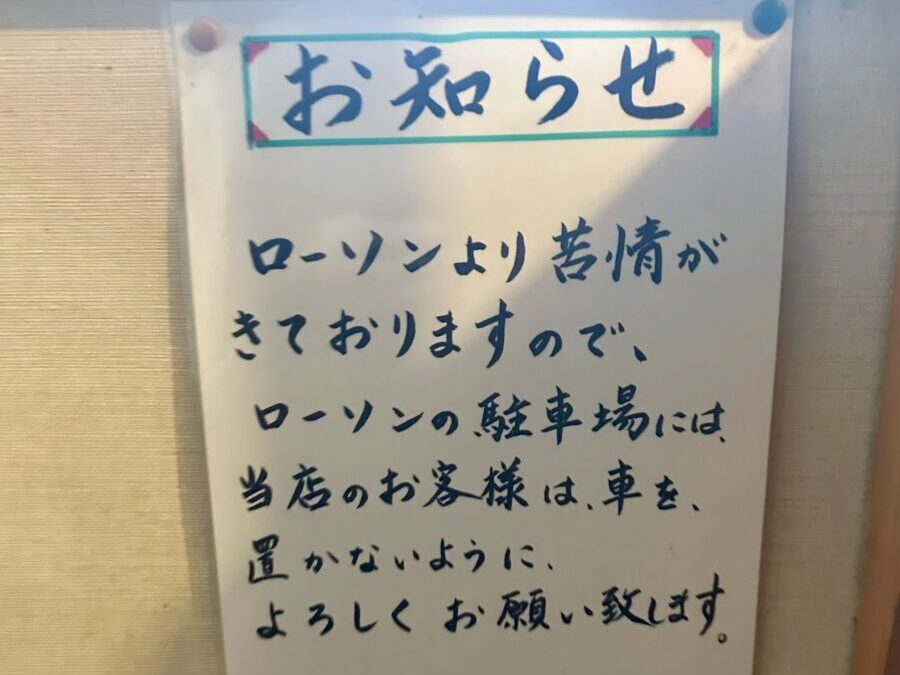 お知らせ
ローソンより苦情が
きておりますので、
ローソンの駐車場には、
当店のお客様は、車を、
置かないように、
よろしくお願い致します。